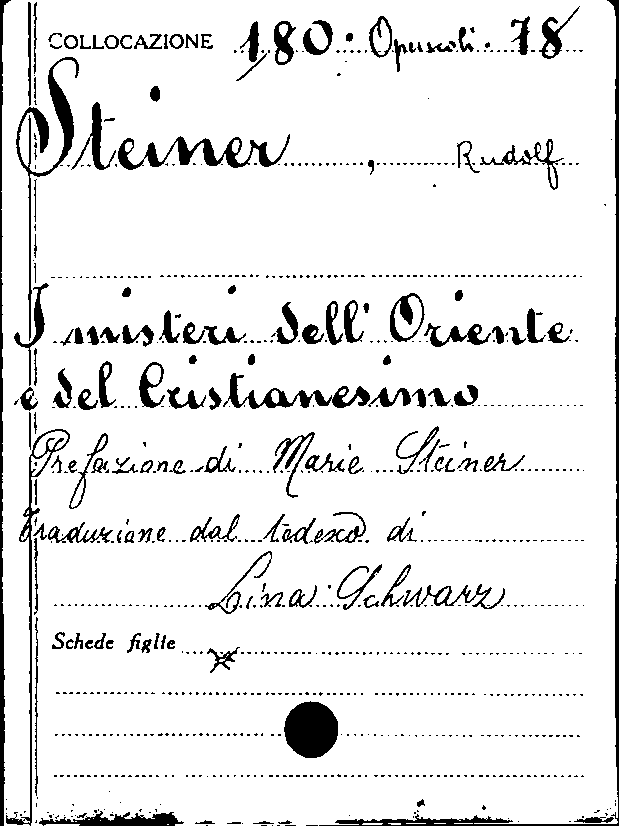 COLLOCAZIONE 180. Opuscoli. 78
Steiner, Rudolf
I misteri dell' Oriente
e del Cristianesimo
Prefazione di Marie Steiner
Traduzione dal tedesco di
Lina Schwarz
Schede figlie